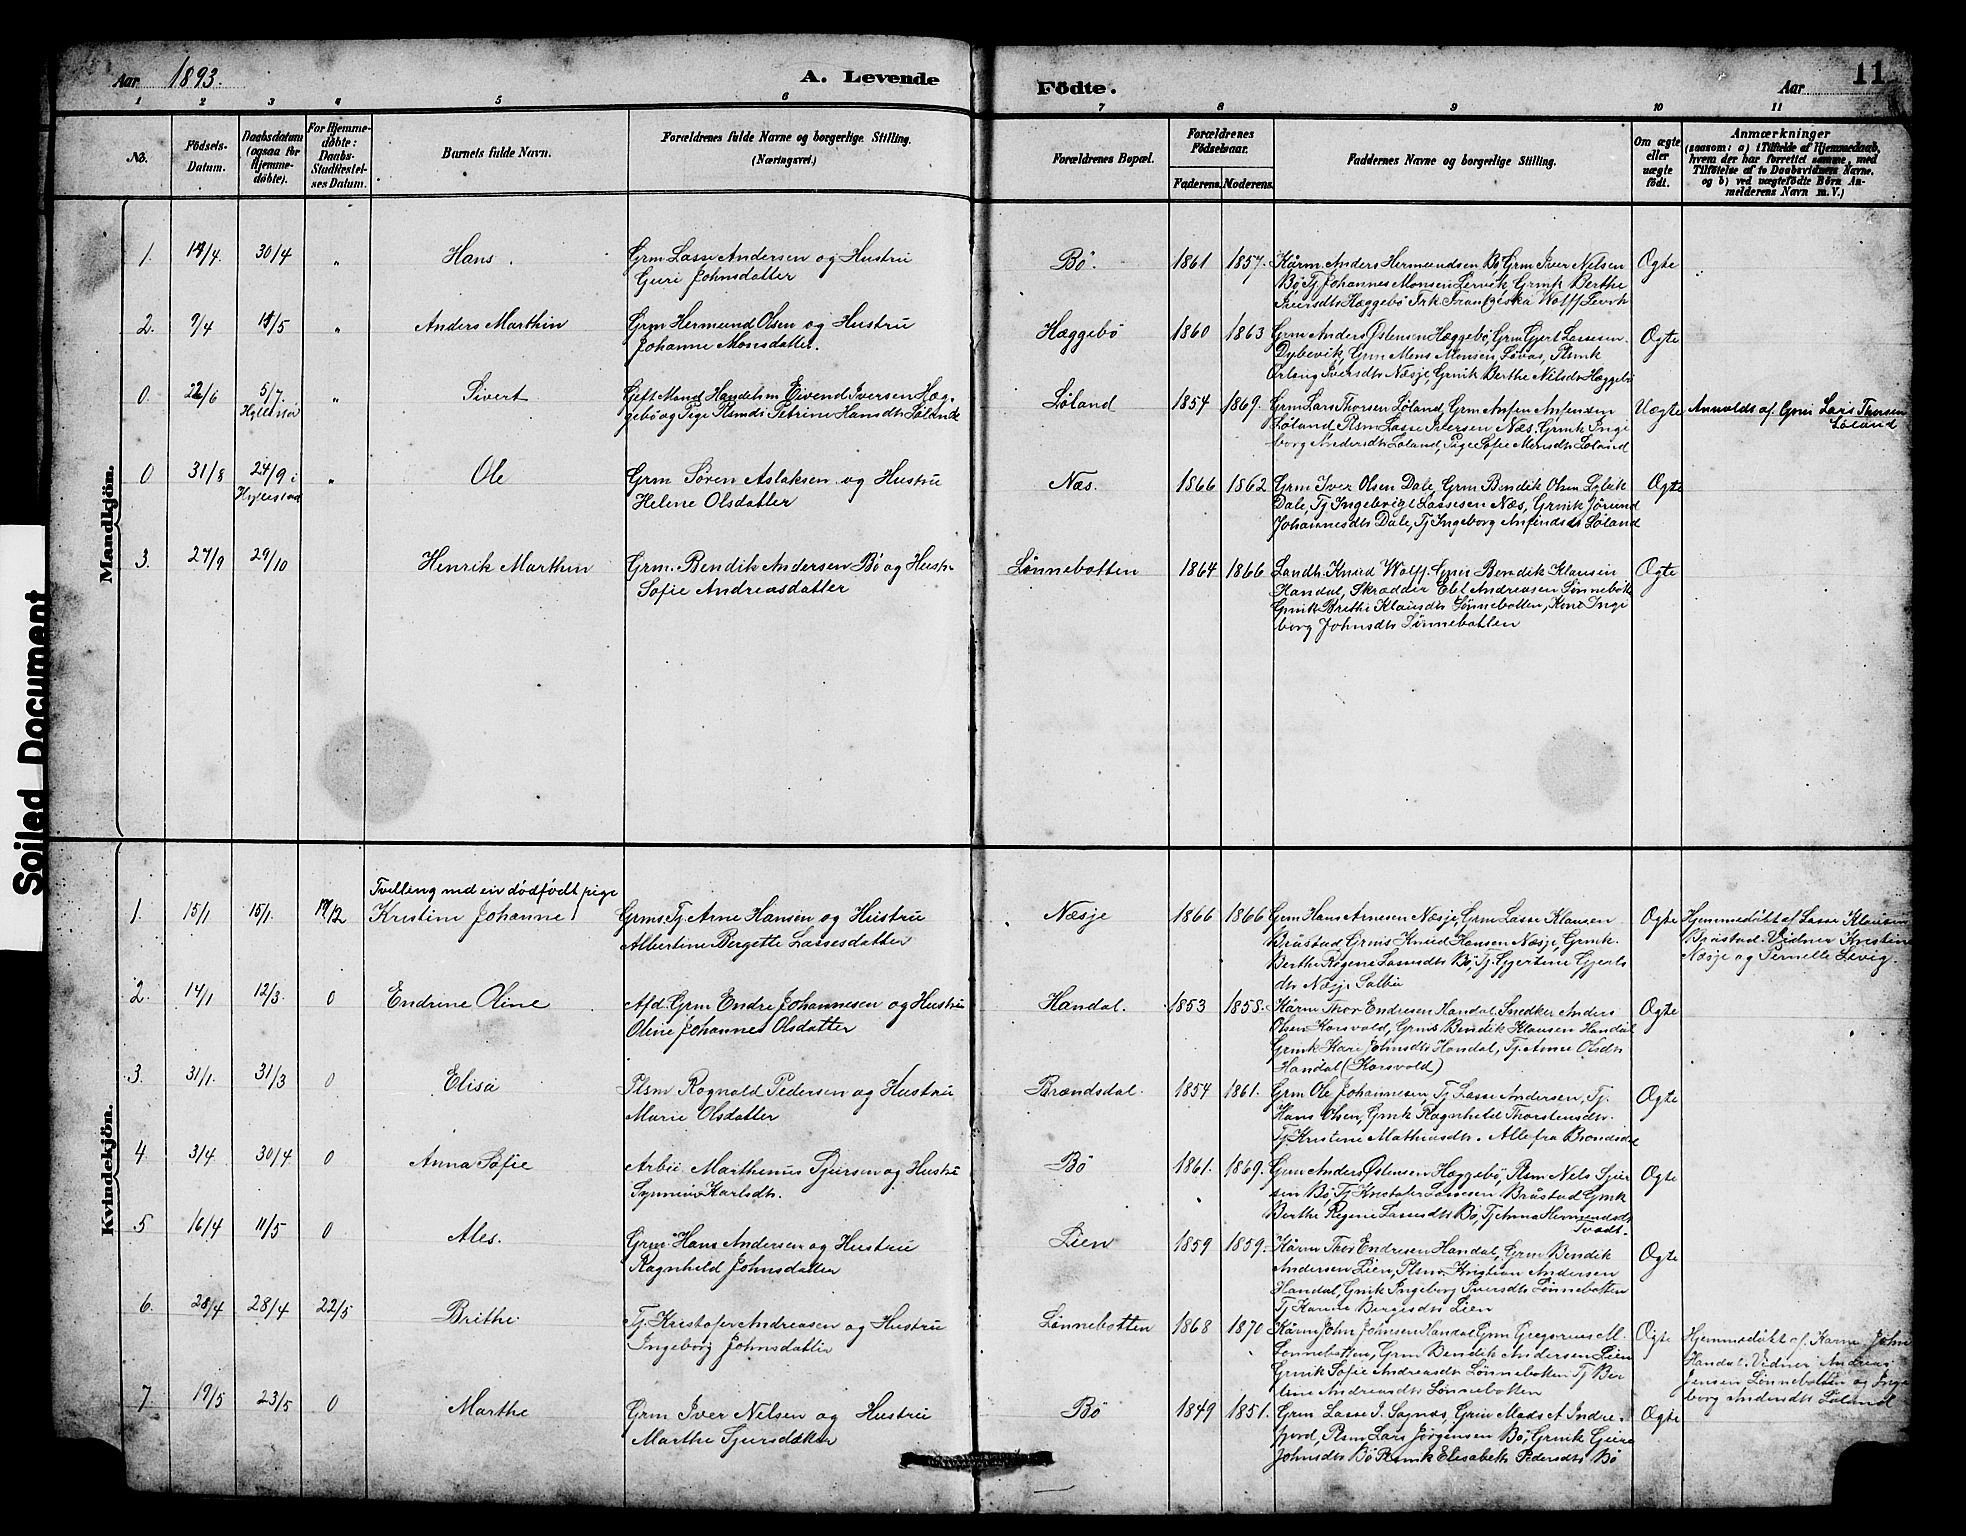 Aar 1893. A. Levende Födte. Aar 11
1 2 3 4 5 6 7 8 9 10 11
No. Födsels-Datum. Daabsdatum (ogsaa for Hjemme-döbte). For Hjemme-döbte: Daabs-Stadfæstel-ses Datum. Barnets fulde Navn. Forældrenes fulde Navne og borgerlige Stilling. (Næringsvei.) Forældrenes Bopæl. Forældrenes Födselsaar. Faderens. Moderens. Faddernes Navne og borgerlige Stilling. Om ægte eller uægte födt. Anmærkninger (saasom: a) i Tilfælde af Hjemmedaab, hvem der har forrettet samme, med Tilföielse af to Daabsvidners Navne. og b) ved uægtefödte Börn An-melderens Navn m. V.)
Mandkjön.
1. /4. 30/4 " Hans. Grm Lasse Andersen og Hustru Bö. 1861 1857. Kårm. Anders Hermundsen Bö, Grm Iver Nielsen Ægte
Guri Johnsdatter Bö, Tj Johannes Monsen Lervik Grmk Berthe
Iversdtr Hæggebö Frk Franziska Wolff
2. 9/4 /5 " Anders Marthin Grm Hermund Olsen og Hustru Hæggebö 1860 1863 Grm Anders Østensen Hæggebö, Grm Gjert Lassesen Ægte
Johanne Monsdatter. Dybevik, Grm Mons Monsen, Plsmk
Iversdtr Næsje, Grmk Berthe Nilsdtr Hæggebö
0. /6 5/7. " Sivert Gift Mand Handelsm Eivend Iversen Hæg- Löland 1854 1869. Grm Lars Thorsen Löland, Grm Anfin Anfinsen Uægte Anmeldt af Grm Lars Thorsen
Hyllestad gebö og Pige Plsmds Petrine Hansdtr Lölande Löland Plsm Lasse Petersen Næs, Grmk Inge Löland
borg Andersdtr Löland, Pige Sofie Monsdtr Löland
0 31/8 24/9 i " Ole Grm Sören Aslaksen og Hustru Næs. 1866 1862 Grm Iver Olsen Dale, Grm Bendik Olsen Ægte
Hyllestad Helene Olsdatter Dale, Tj Ingebrigt Lassesen Næs, Grmk Jörund
Johannesdtr Dale, Tj Ingeborg Anfindsdtr Löland
3. 27/9 29/10 Henrik Marthin Grm. Bendik Andersen Bö og Hustr. Lönnebotten 1864 1866 Landh. Knud Wolff. Grm Bendik Klausen Ægte
Sofie Andreasdatter Handal, Skrædder Andreasen Lönnebott
Grmk Brithe Klausdtr Lönnebotten, Kone Inge
borg Johnsdtr Lönnebotten
Kvindekjön.
Tvilling med en dödfödt pige
1. 15/1 15/1. /2 Kristine Johanne Grms. Tj Arne Hansen og Hustru Næsje 1866 1866 Grm Hans Arnesen Næsje, Grm Lasse Klausen Ægte Hjemmedöbt af Lasse Klausen
Albertine Bergette Lassesdatter Bråstad, Grms Knud Hansen Næsje, Grmk. Bråstad. Vidner Kristine
Berthe Regine Lassesdtr Bö, Tj. Gjertine Gjerts Næsje og Pernelle
dtr Næsje
2. 14/1 12/3. 0 Endrine Oline Afd. Grm Endre Johannesen og Hustru Handal. 1853 1858. Kårm Thor Endresen Handal, Snedker Anders Ægte
Oline Johanne Olsdatter Olsen Korsvold, Grms Bendik Klausen Handal
Grmk Kari Johnsdtr Handal, Tj. Anne Olsdtr
Handal (Korsvold)
3. 31/1. 31/3 0 Elisa Plsm Ragnald Pedersen og Hustru Brændsdal. 1854 1861. Grm Ole Johannesen, Tj Lasse Andersen, Tj. Ægte
Marie Olsdatter Hans Olsen, Grmk Ragnhild Thorstensdtr.
Tj. Kristine Mathiasdtr. Alle fra Brændsdal
4. 3/4 30/4 0 Anna Sofie Arbei Marthinus Sjursen og Hustru Bö 1861. 1869. Grm Anders Østensen Hæggebö, Plsm Nils Sjur Ægte
Karlsdtr. sen Bö, Tj Kristofer Lassesen Bråstad Grmk
Berthe Regine Lassesdtr Bö, Tj Anna Hermundsdtr
5 16/4 11/5 0 Ales. Grm Hans Andersen og Hustru Lien 1859 1859. Kårm Thor Endresen Handal, Grm Bendik Ægte
Ragnhild Johnsdatter Andersen Lien, Plsm Kristian Andersen
Handal, Grmk Ingeborg Iversdtr Lönnebotten
Tj Karine Lien
6. 28/4 28/4 22/5 Brithe Tj. Kristofer Andreasen og Hustru Lönnebotten 1868 1870 Kårm John Johnsen Handal, Grm Gregorius M. Ægte Hjemmedöbt af Kårm John
Ingeborg Johnsdatter Lönnebotten, Grm Bendik Andersen Lien Handal. Vidner Andreas
Grmk Sofie Andreasdtr Lönnebotten Tj Ber Jensen Lönnebotten og Inge
Andreasdtr Lönnebotten borg Andersdtr Löland
7. 19/5 23/5 0 Marthe Grm Iver Nilsen og Hustru Bö 1849 1851. Grm Lasse I. Sognes, Grm Mads A Indre- Ægte
Marthe Sjursdatter fjord, Plsm Lars Jörgensen Bö, Grmk
Johnsdtr Bö Plsmk Elisabeth Pedersdtr Bö
Soiled Document